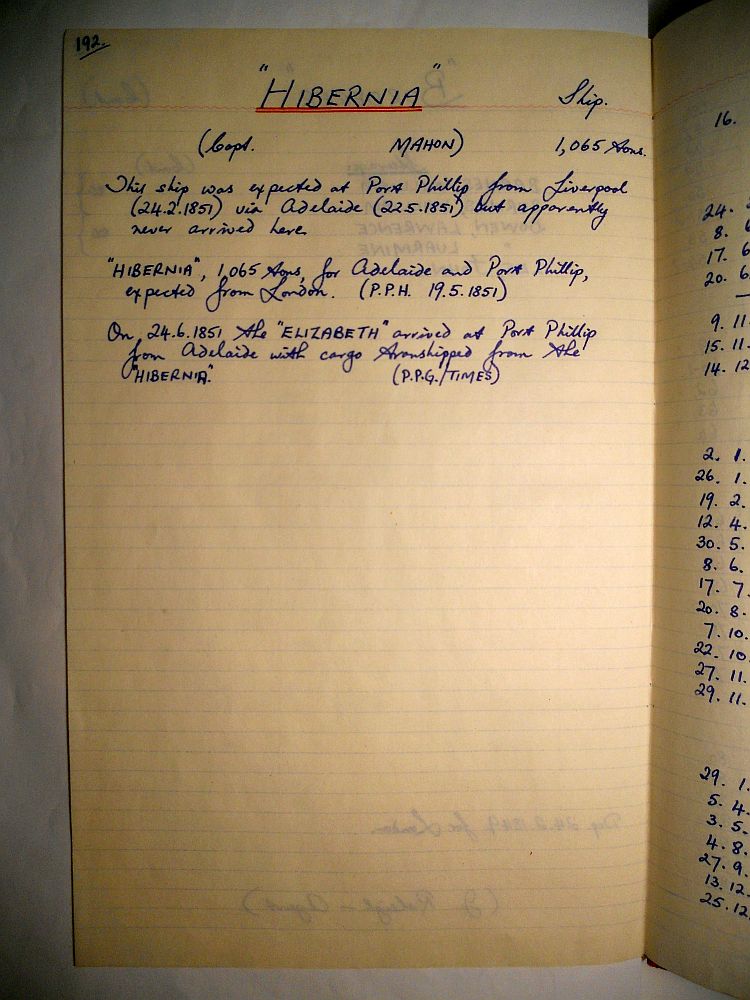 192.
"HIBERNIA" Ship.
(Capt. MAHON) 1,065 tons.
This ship was expected at Port Phillip from Liverpool
(24.2.1851) via Adelaide (22.5.1851) but apparently
never arrived here.
"HIBERNIA", 1,065 tons, for Adelaide and Port Phillip,
expected from London. (P.P.H. 19.5.1851)
On 24.6.1851 the "ELIZABETH" arrived at Port Phillip
from Adelaide with cargo transhipped from the
"HIBERNIA". (P.P.G./TIMES)
16.
24.
8. 6
17. 6
20. 6
9. 11.
15. 11.
14. 12
2. 1.
26. 1.
19. 2.
12. 4.
30. 5.
8. 6.
17. 7.
20. 8.
7. 10.
22. 10
27. 11.
29. 11.
29. 1.
5. 4.
3. 5.
4. 8.
27. 9.
13. 12.
25. 12